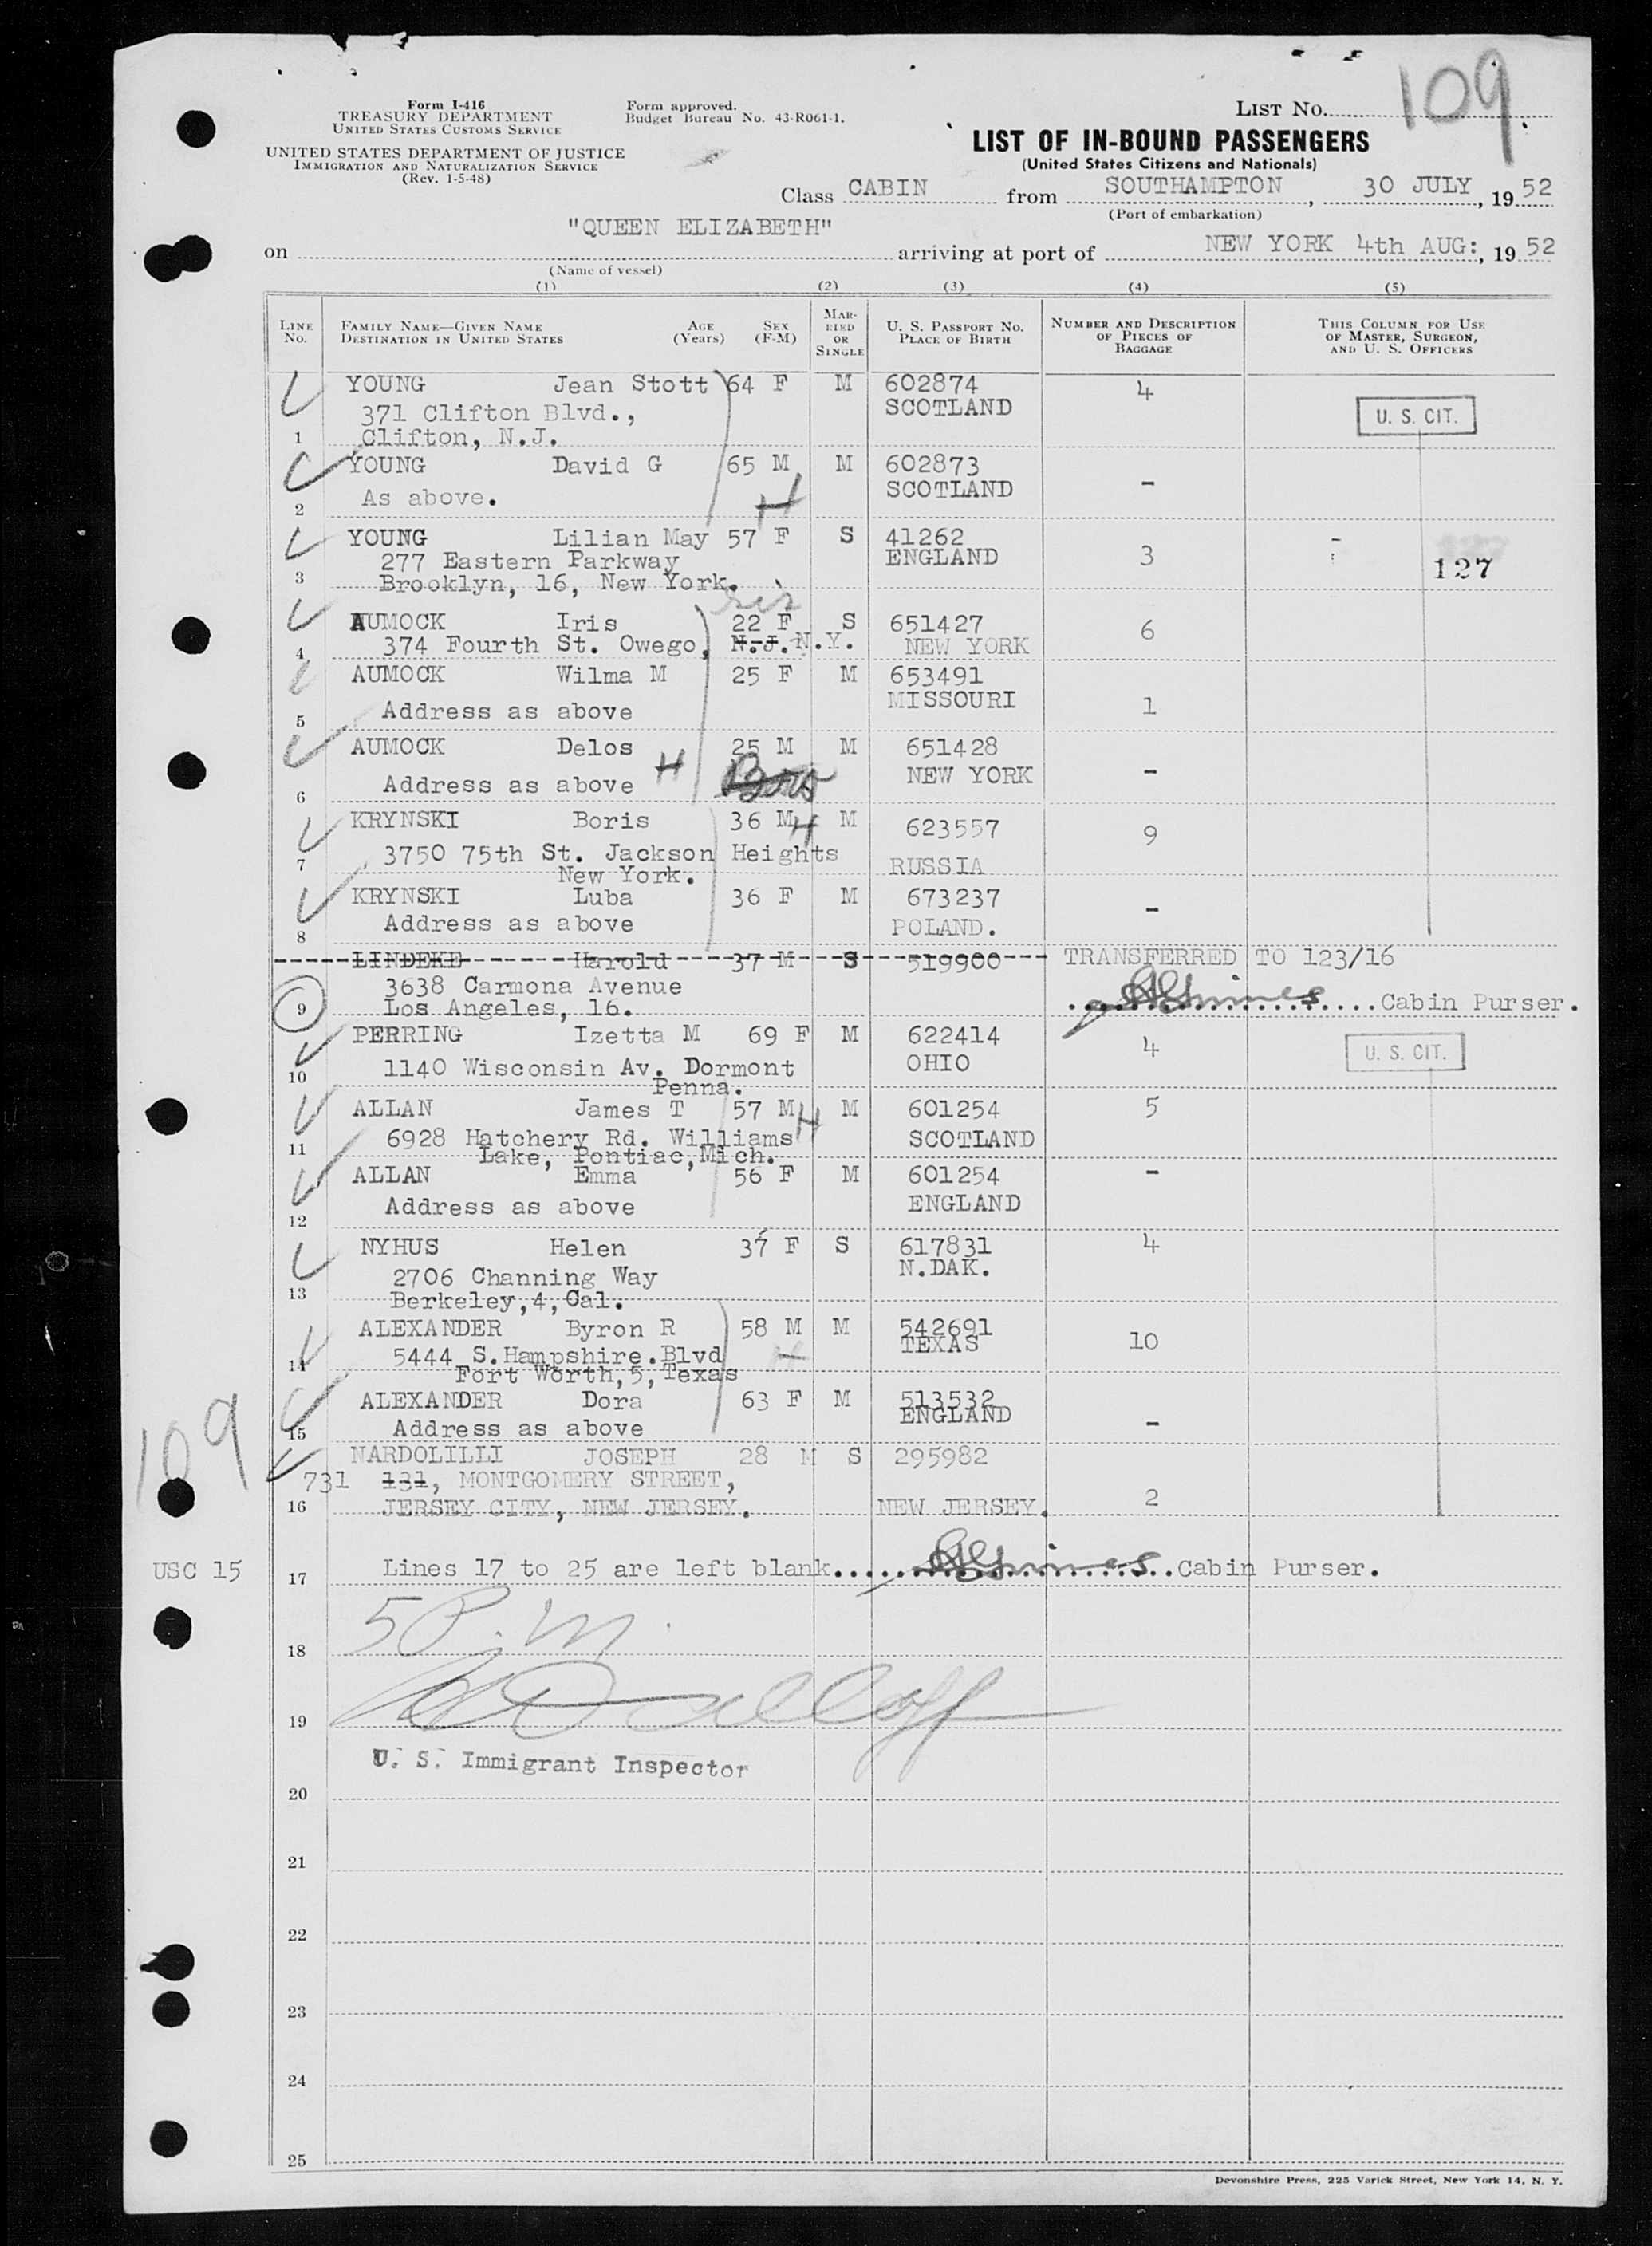 109
Form I-416
TREASURY DEPARTMENT
UNITED STATES CUSTOMS SERVICE
UNITED STATES DEPARTMENT OF JUSTICE
IMMIGRATION AND NATURALIZATION SERVICE
(Rev. 1-5-48)
Form approved.
Budget Bureau No. 43-R061-1.
LIST No.
LIST OF IN-BOUND PASSENGERS
(United States Citizens and Nationals)
Class CABIN from SOUTHAMPTON, 30 JULY, 19 52
(Port of embarkation)
on "QUEEN ELIZABETH" arriving at port of NEW YORK 4th AUG:, 19 52
(Name of vessel)
(1) (2) (3) (4) (5)
LINE No. FAMILY NAME—GIVEN NAME DESTINATION IN UNITED STATES AGE (Years) SEX (F-M) MARRIED OR SINGLE U. S. PASSPORT NO. PLACE OF BIRTH NUMBER AND DESCRIPTION OF PIECES OF BAGGAGE THIS COLUMN FOR USE OF MASTER, SURGEON, AND U. S. OFFICERS
YOUNG Jean Stott 64 F M 602874 4
371 Clifton Blvd., SCOTLAND U. S. CIT.
1 Clifton, N.J.
YOUNG David G 65 M M 602873 -
As above. SCOTLAND
2 H
YOUNG Lilian May 57 F S 41262
277 Eastern Parkway ENGLAND 3 127
3 Brooklyn, 16, New York.
AUMOCK Iris 22 F S 651427 6
4 374 Fourth St. Owego, N.J. N.Y. NEW YORK
AUMOCK Wilma M 25 F M 653491
MISSOURI
5 Address as above 1
AUMOCK Delos 25 M M 651428
Address as above H NEW YORK -
6
KRYNSKI Boris 36 M H M 623557 9
7 3750 75th St. Jackson Heights RUSSIA
New York.
KRYNSKI Luba 36 F M 673237 -
8 Address as above POLAND.
LINDEKE Harold 37 M S 519900 TRANSFERRED TO 123/16
3638 Carmona Avenue
9 Los Angeles, 16. Cabin Purser.
PERRING Izetta M 69 F M 622414 4
10 1140 Wisconsin Av. Dormont OHIO U. S. CIT.
Penna.
ALLAN James T 57 M H M 601254 5
11 6928 Hatchery Rd. Williams SCOTLAND
Lake, Pontiac, Mich.
ALLAN Emma 56 F M 601254 -
Address as above ENGLAND
12
NYHUS Helen 37 F S 617831 4
2706 Channing Way N.DAK.
13 Berkeley, 4, Cal.
ALEXANDER Byron R 58 M M 542691
14 5444 S.Hampshire.Blvd H TEXAS 10
Fort Worth, 5, Texas
ALEXANDER Dora 63 F M 513532
15 Address as above ENGLAND -
109
NARDOLILLI JOSEPH 28 M S 295982
731 131, MONTGOMERY STREET,
16 JERSEY CITY, NEW JERSEY. NEW JERSEY. 2
USC 15
17 Lines 17 to 25 are left blank Cabin Purser.
5 P.M.
18
19
U. S. Immigrant Inspector
20
21
22
23
24
25
Devonshire Press, 225 Varick Street, New York 14, N. Y.